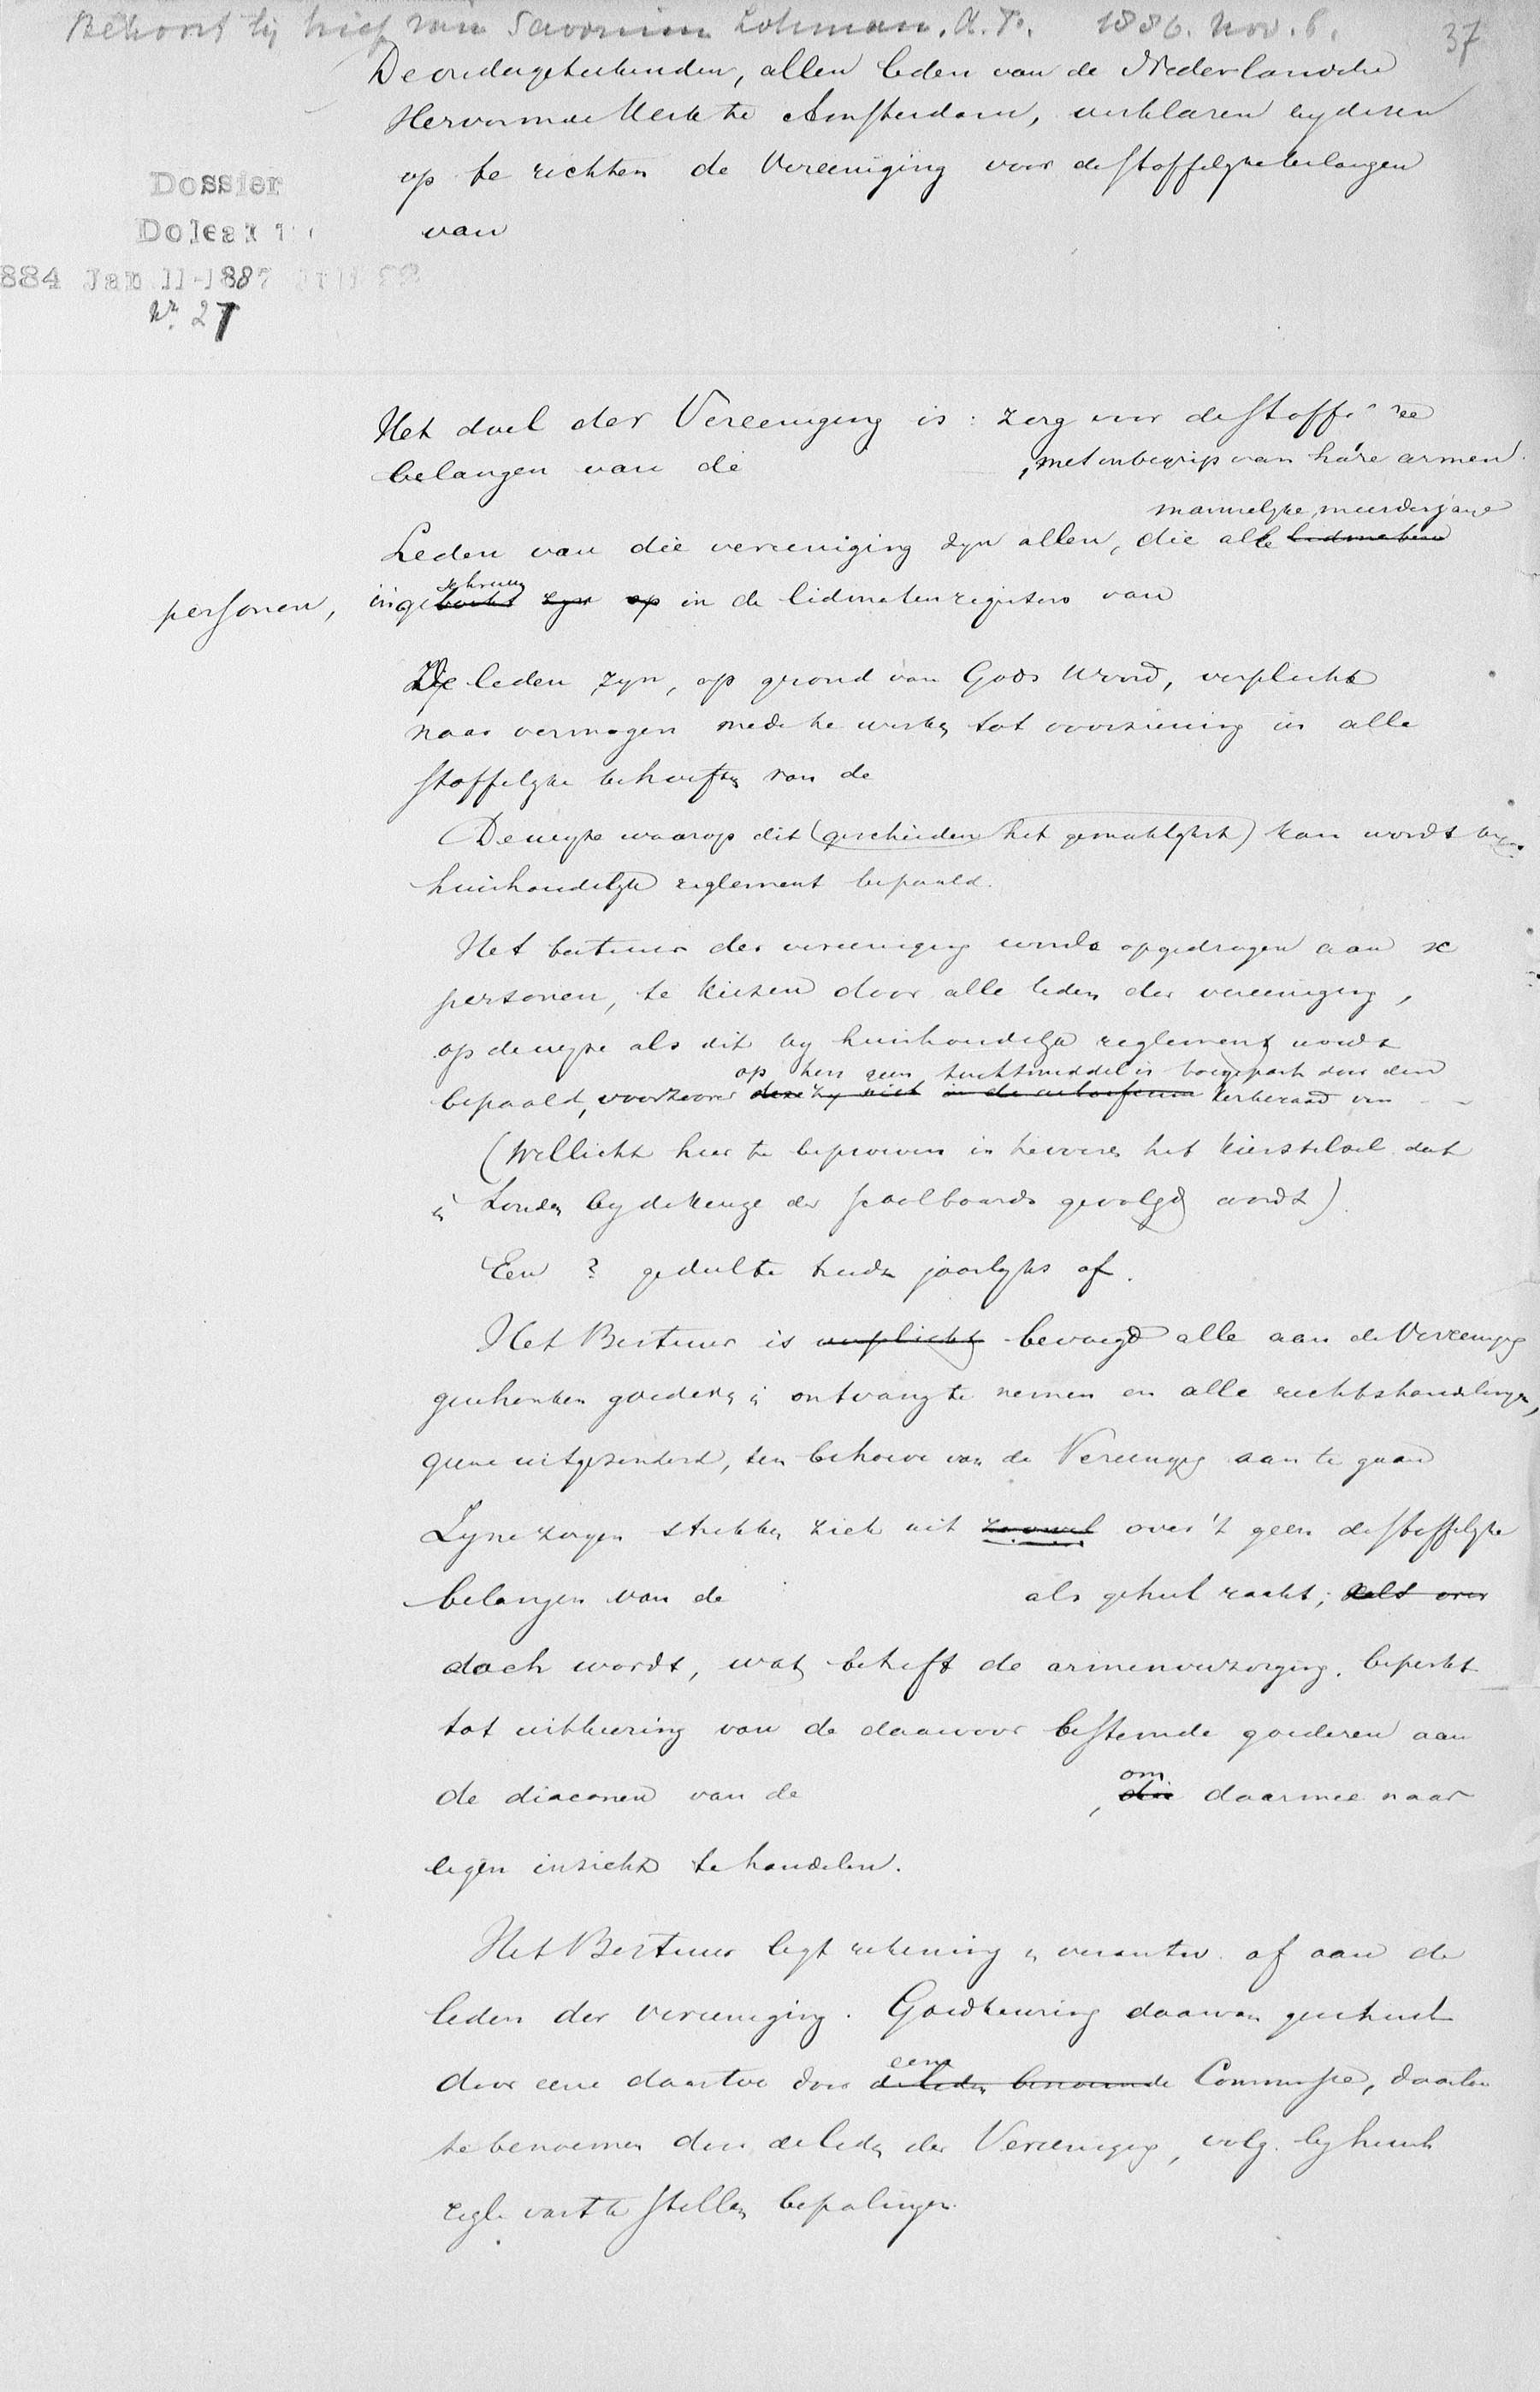 Behoort bij brief van Savornin Lohman. A.F. 1886. Nov. 6. 37
De ondergeteekenden, allen leden van de Nederlandsche
Hervormde Kerk te Amsterdam, verklaren by dezen
op te richten de Vereeniging voor de stoffelyke belangen
van
Dossier
Doleantie
1884 Jan 11-1887
Nr. 27
Het doel der Vereeniging is: zorg voor de stoffelyke
belangen van de , met inbegrip van hare armen.
mannelyke, meerderjarige
Leden van die vereeniging zyn allen, die alle lidmaten
personen, ingeboekt schreven zyn op in de lidmatenregisters van
De leden zyn, op grond van Gods Woord, verplicht
naar vermogen mede te werken tot voorziening in alle
stoffelyke behoeften van de
De wyze waarop dit (geschieden het gemakkelykst) kan wordt by
huishoudelyk reglement bepaald.
Het bestuur der vereeniging wordt opgedragen aan x
personen, te kiezen door alle leden der vereeniging,
op de wyze als dit by huishoudelyk reglement wordt
op hen geen tuchtmiddel is toegepast door den
bepaald, voorzoover deze zy niet in de Kerkeraad van
(Wellicht hier te beproeven in te voeren het kiesstelsel dat
in Londen by de keuze der schoolboards gevolgd wordt).
Een ? gedeelte treedt jaarlyks af.
Het Bestuur is verplicht bevoegd alle aan de Vereeniging
geschonken goederen in ontvangst te nemen en alle rechtshandelingen,
geene uitgezonderd, ten behoeve van de Vereeniging aan te gaan
Zyne zorgen strekken zich uit zoowel over 't geen de stoffelyke
belangen van de als geheel raakt; als over
doch wordt, wat betreft de armenverzorging, beperkt
tot uitkeering van de daarvoor bestemde goederen aan
de diaconen van de , die om daarmee naar
eigen inzicht te handelen.
Het Bestuur legt rekening en verantw. af aan de
leden der vereeniging. Goedkeuring daarvan geschiedt
door eene daartoe door de leden benoemde eene Commissie, daartoe
te benoemen door de leden der Vereeniging, volg. by huish.
regl. vast te stellen bepalingen.